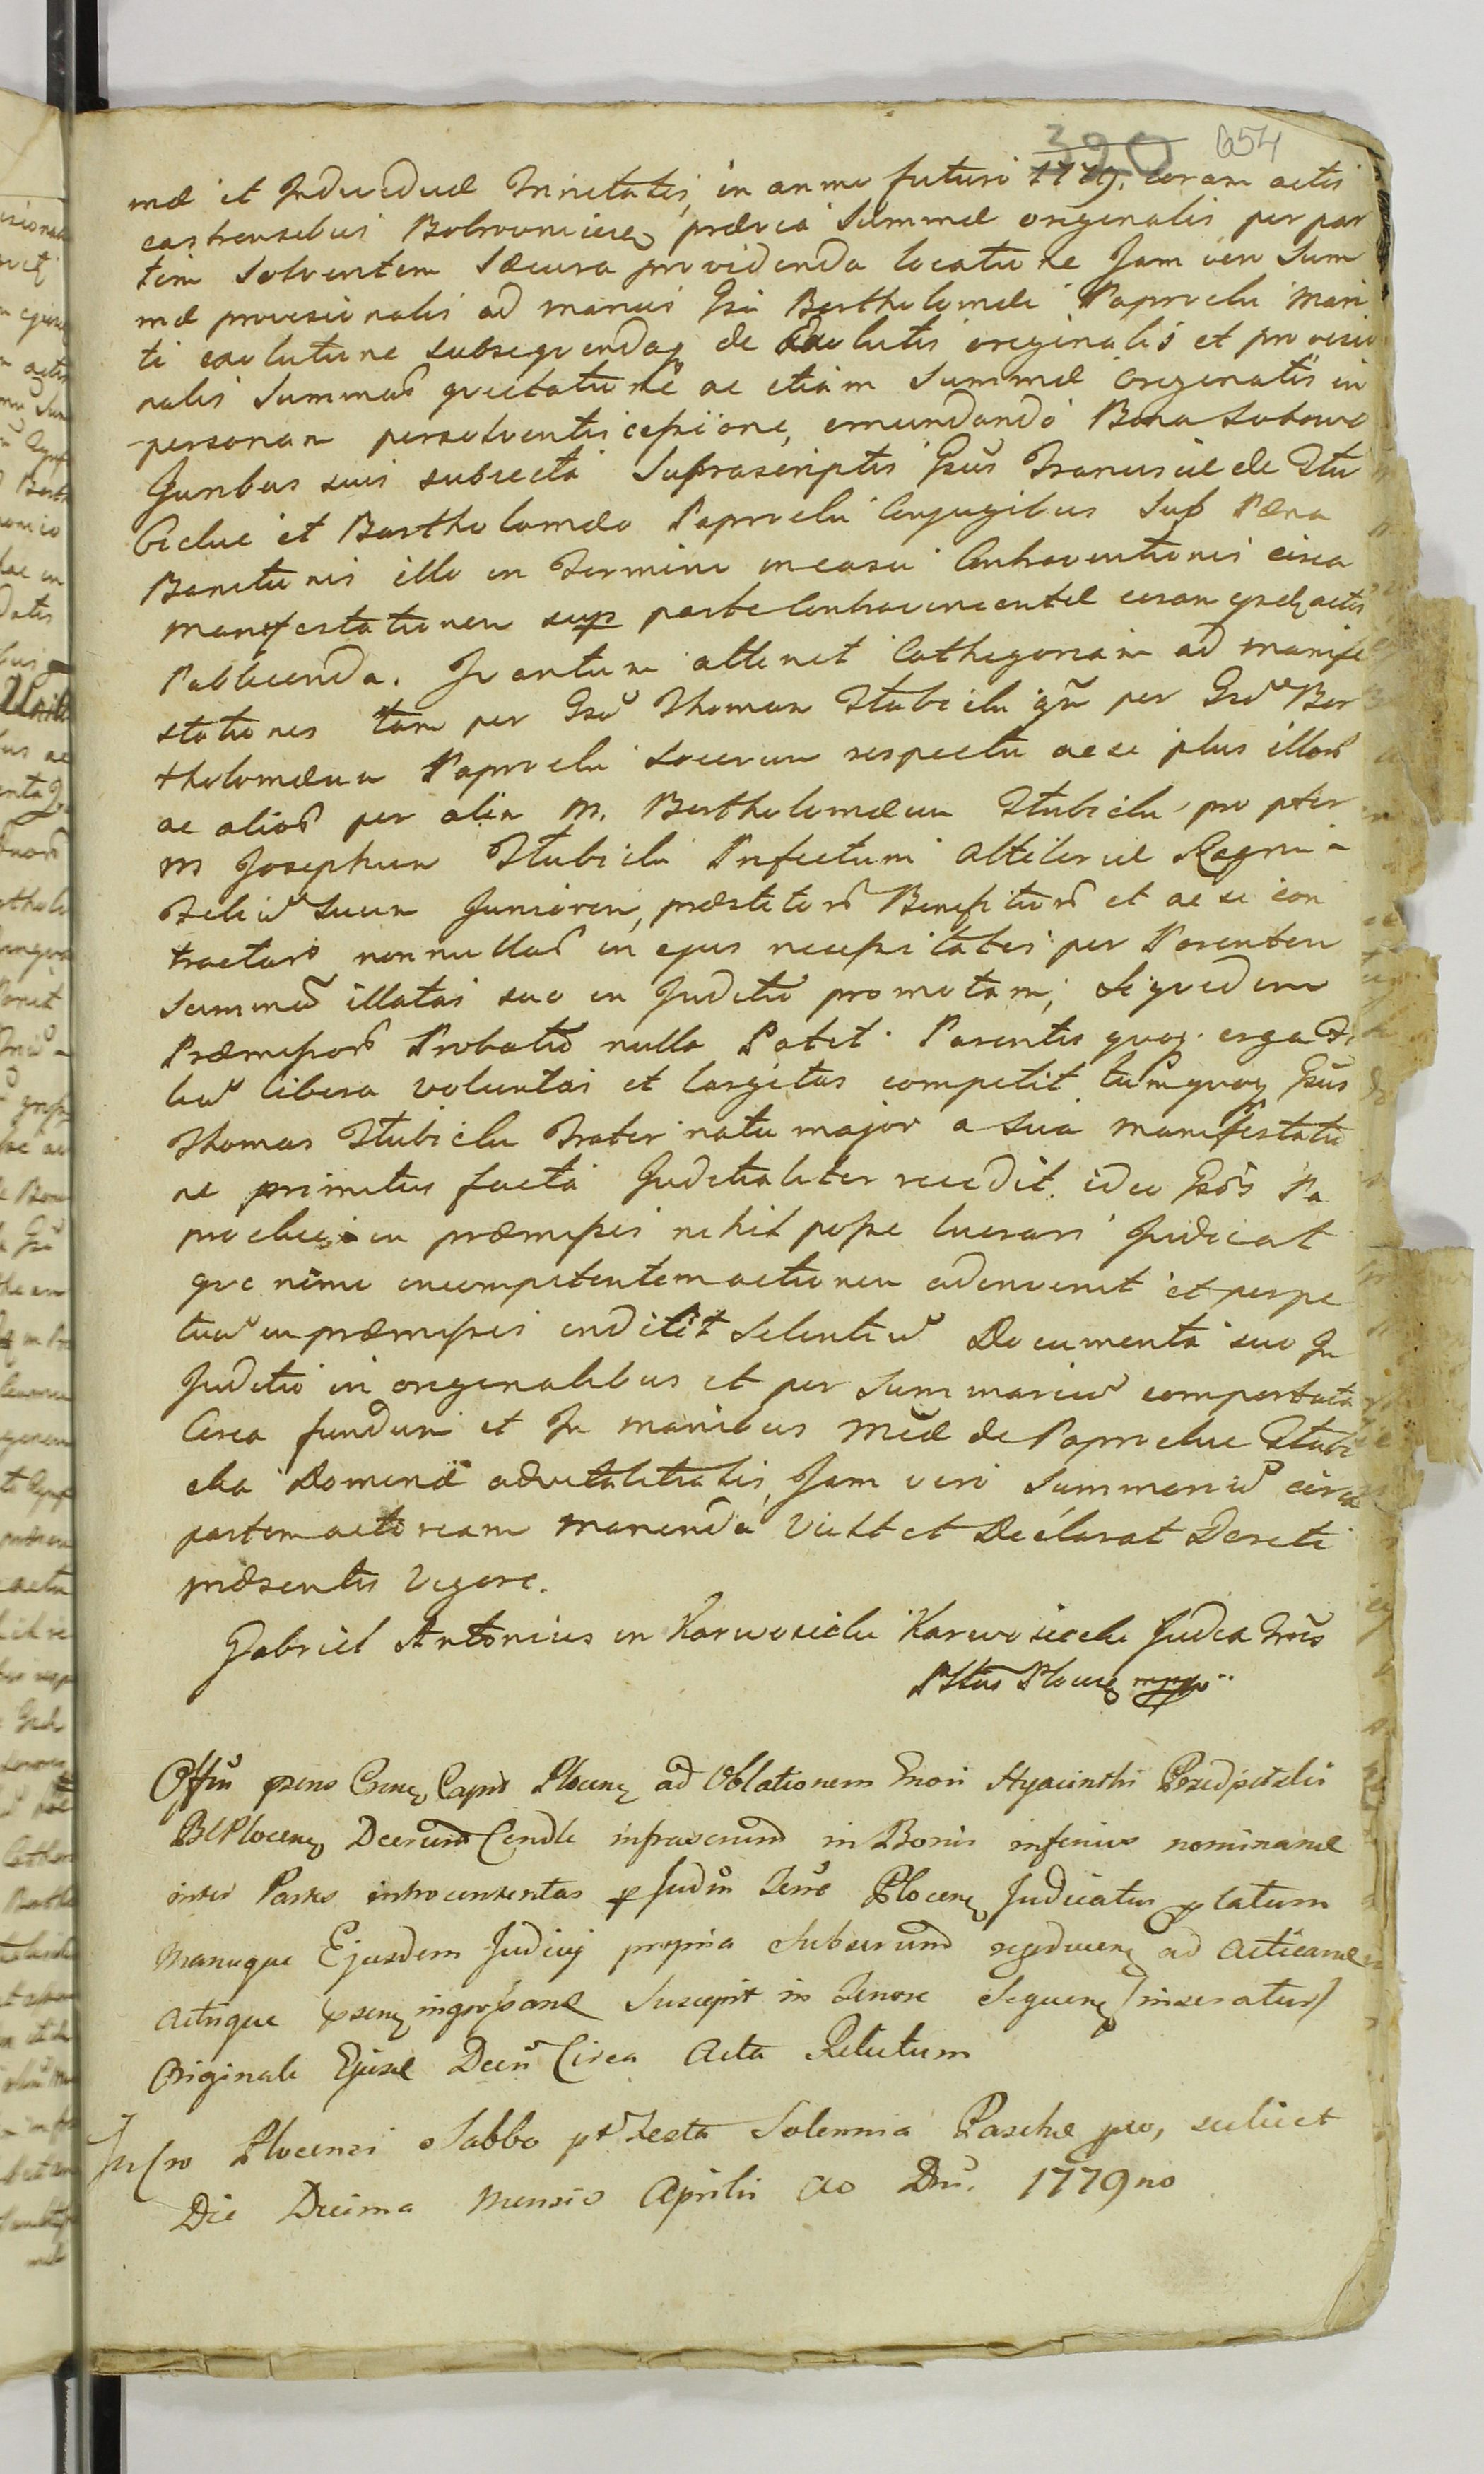 390 654
mæ et Individuæ Trinitatis, in anno futuro 1779. coram actis
castrensibus Bobrovnicen prævia Summæ originalis per par
tem Solventem Secura providenda locatione Jam vero Sum
mæ provisionalis ad manus Gsi Bartholomæi Paprocki Mari
ti exolutione subsequendaq de exolutis originalis et provisio
nalis Summar quietatione ac etiam Summæ originalis in
personam persolventis cessione, emundando Bona
Juribus suis subiecta Suprascriptis Gsis Franciscæ de Stu
bickie et Bartholomæo Paprocki Conjugibus Sub Pæna
Banitionis illo in Termino in casu Contraventionis circa
manifestationem sup parte Contraveniente coram actis
Publicanda. In antum attinet Cathegoriam ad manife
stationes tam per Gsu Thomam Stubicki qm per Gsu Bar
tholomæum Paprocki Socerum respectu ac se plus illar
ac alior per olim M. Bartholomæum Stubicki propter
M Josephum Stubicki Præfectum Altileriæ Regni
Filiu Suum Juniorem, præstitor Benefitior et ac se con
tractar nonnullas in ejus necessitates per Parentem
Summas illatas suo in Juditio promotam, Siquidem
Præmissor Probatio nulla Patet. Parentis quoq. erga Fi
liu libera voluntas et largitas competit tumquoq Gsus
Thomas Stubicki Frater natu major a Sua manifestatio
ne primitus facta Juditialiter recedit, ideo Gsos Pa
prockie in præmissis nihil posse lucrari Judicat
incompetentem actionem adinvenit et perpe
tuu in præmissis indicit Silentiu Documenta suo In
Juditio in originalibus et per Summariu comportata
Circa fundum et In manibus de Paprockie Stubi
cka Dominæ advitalitialis, Jam vero Summariu circa
partem actoream manenda Vult et Declarat Decreti
præsentis Vigore.
Gabriel Antonius in Karwosieki Karwosiecki Judex Trris
Plocen mpp
Offm psens Crsne Capit Plocen ad Oblationem Gnosi Hyacinthi Przedpelski
BCPlocen Decrum Condle infrascrum in Bonis inferius nominanæ
inter Partes introcontentas p Judm Terre Plocen Judicatus p latum
manuque Ejusdem Judicij propria Subscrum ad Acticanæ
Actisque psen ingrossanæ Suscepit in Tenore Sequen [inseratur]
Originali Ejusæ Decri Circa Acta Relictum
In Cro Plocensi Sabbo pt Festa Solennia Paschæ pro, scilicet
Die Decima Mensis Aprilis Ao Dni. 1779no